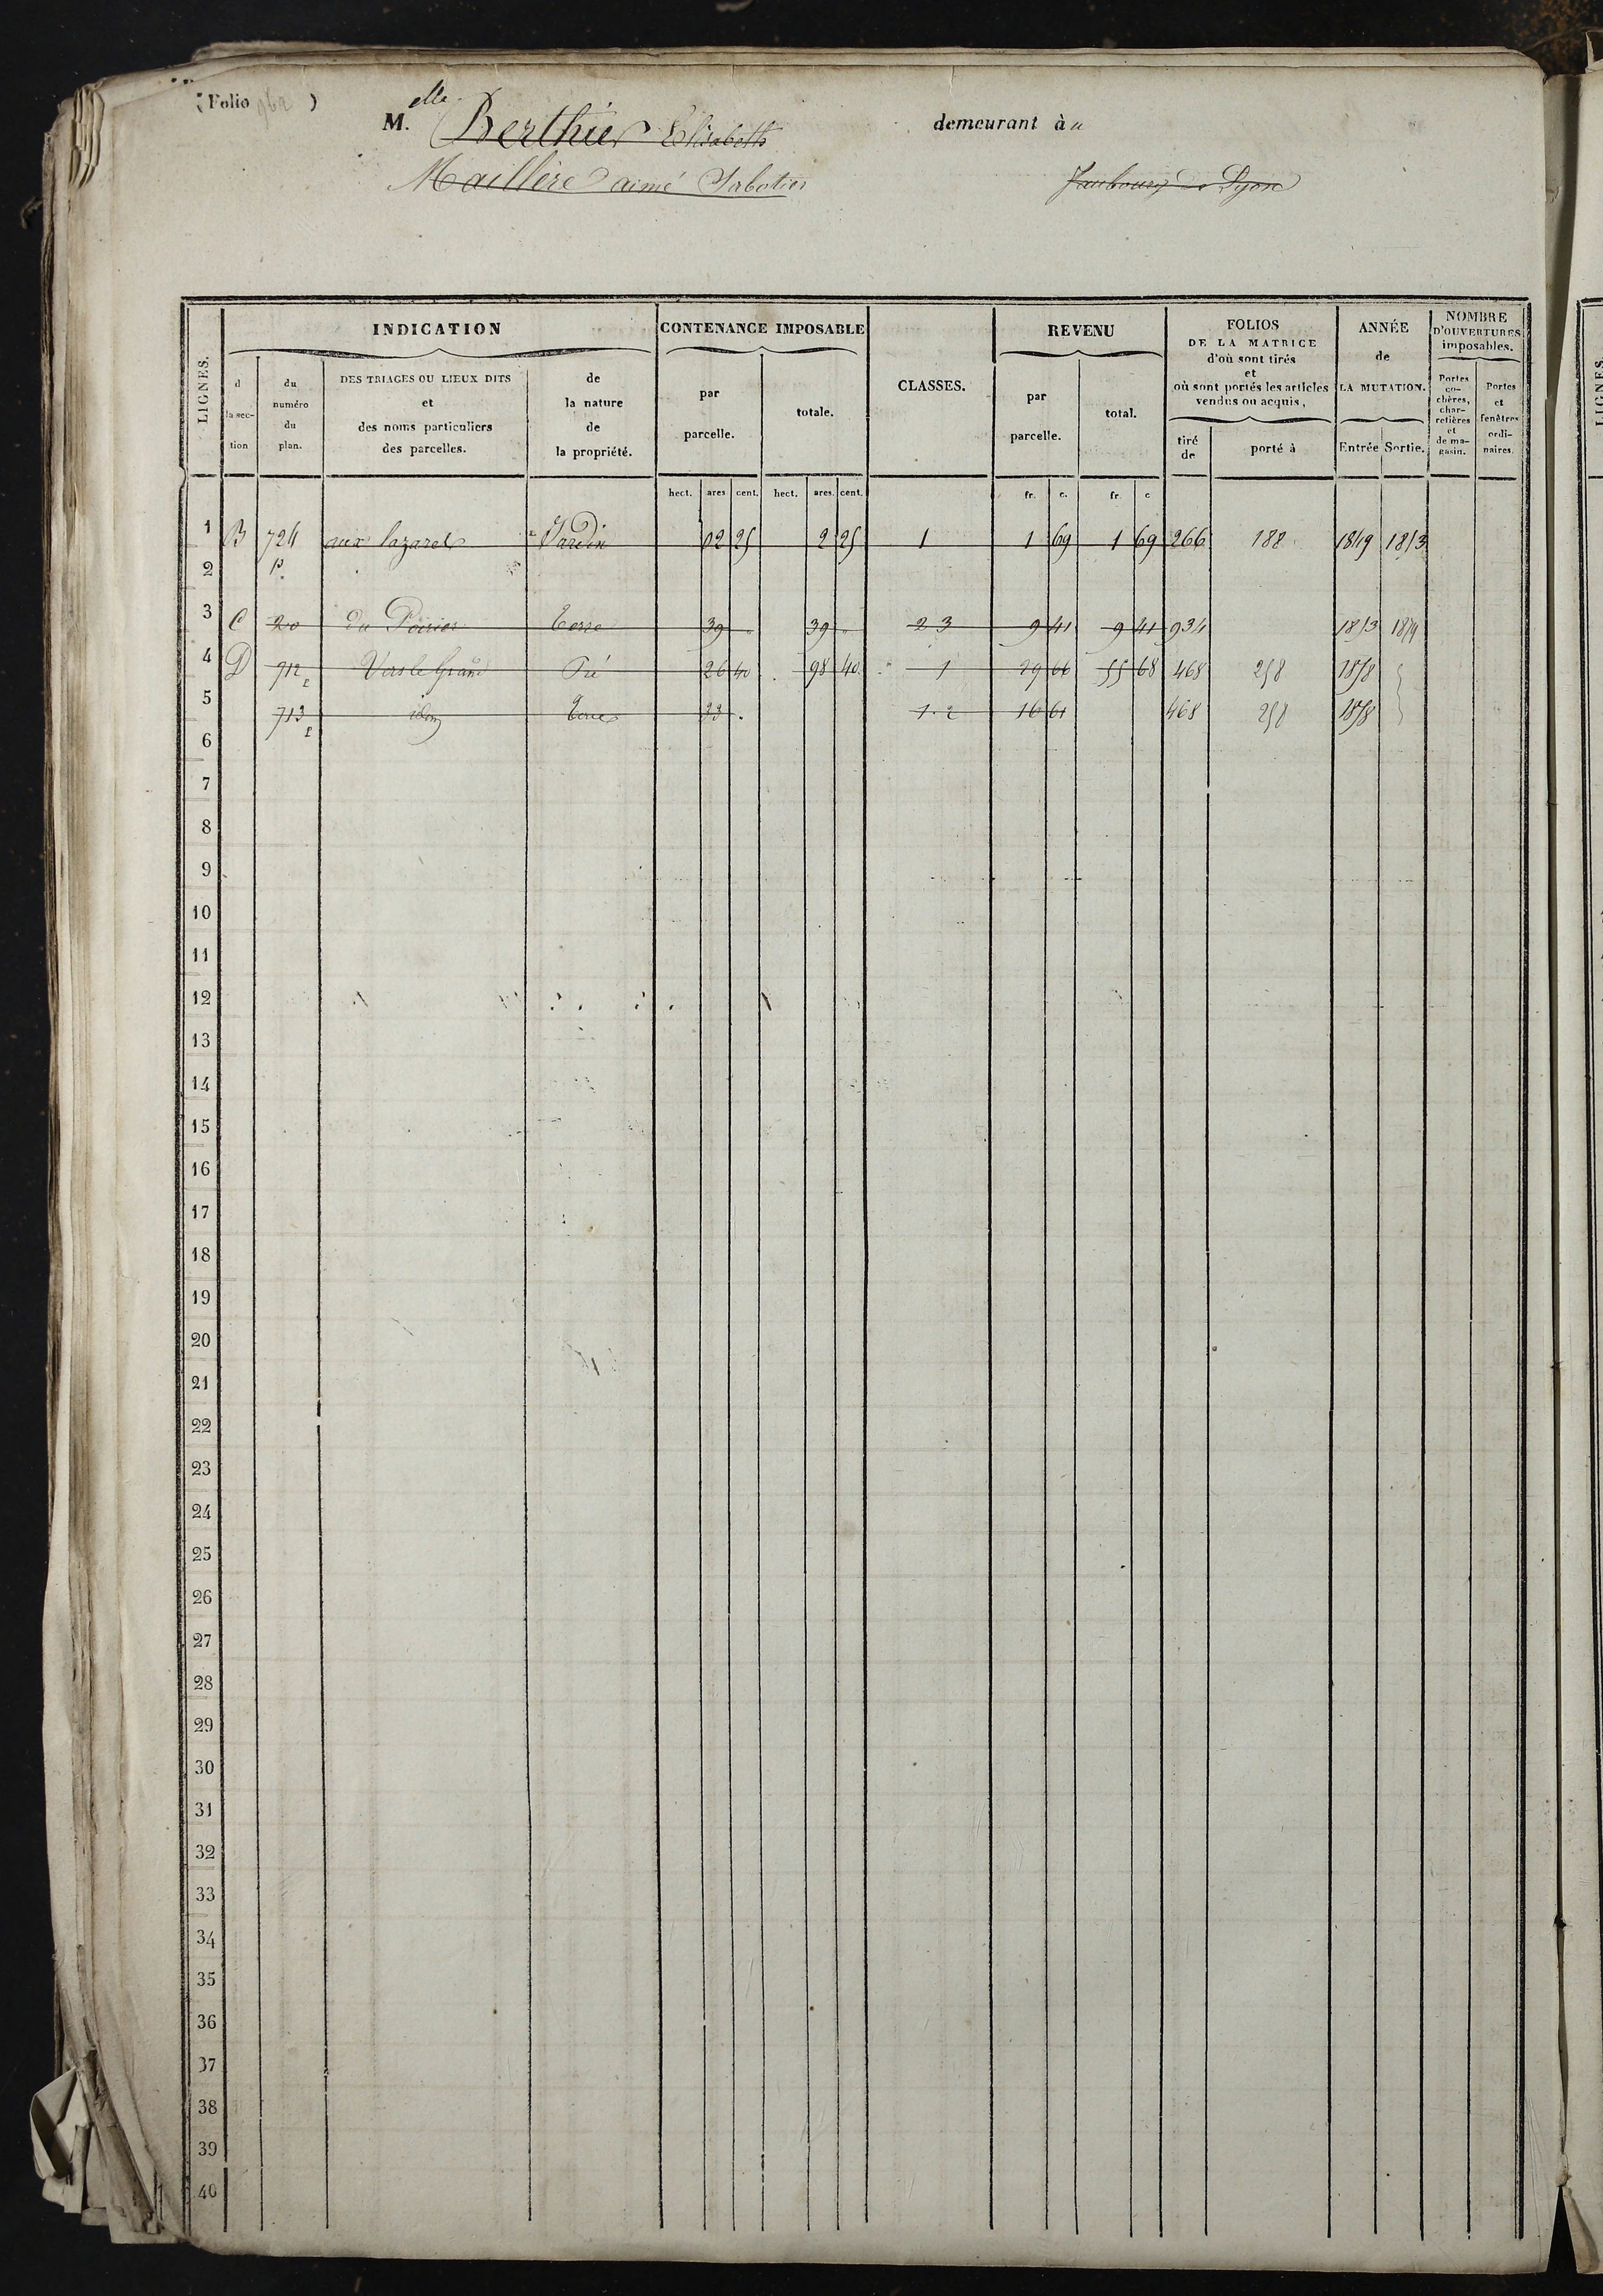 (Folio 962 )
M.elle Berthier Elisabeth demeurant à
Maillère aimé Sabotier Faubourg de Lyon
LIGNES. INDICATION CONTENANCE IMPOSABLE CLASSES. REVENU FOLIOS DE LA MATRICE d'où sont tirés et où sont portés les articles vendus ou acquis, ANNÉE de LA MUTATION. NOMBRE D'OUVERTURES imposables.
d la sec- tion du numéro du plan. DES TRIAGES OU LIEUX DITS et des noms particuliers des parcelles. de la nature de la propriété. par parcelle. totale. par parcelle. total. tiré de porté à Entrée Sortie. Portes co- chères, char- retières et de ma- gasin. Portes et fenêtres ordi- naires.
hect. ares cent. hect. ares. cent. fr. c. fr. c
1 B 724 aux lazares Jardin 02 25 2 25 1 1 69 1 69 266 188 1849 1853
2 p.
3 C 20 du Poirier Terre 39 39 2 3 9 41 9 41 934 1853 1859
4 D 712 Vers le Grand Pré 26 40 98 40 1 29 66 55 68 468 258 1858
5 713 idem Terre 33 . 1.2 16 61 468 258 1858
6
7
8
9
10
11
12
13
14
15
16
17
18
19
20
21
22
23
24
25
26
27
28
29
30
31
32
33
34
35
36
37
38
39
40
LIGNES